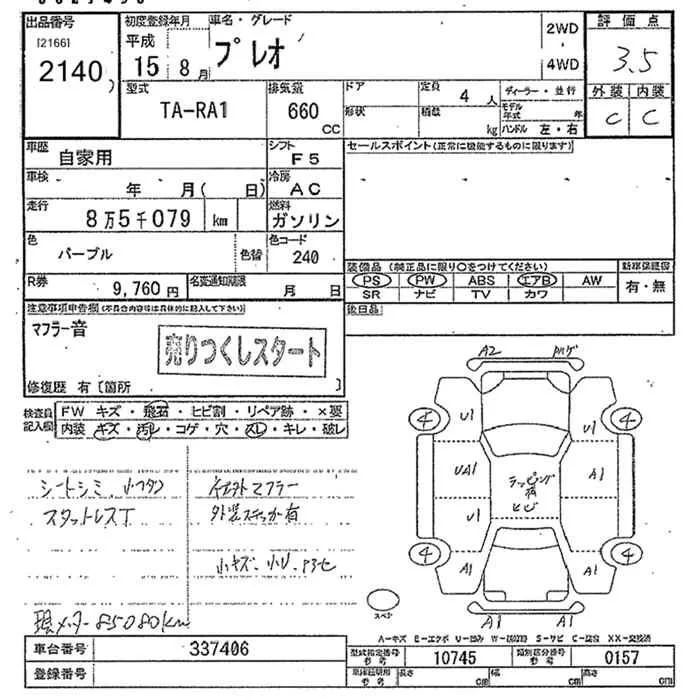 出品番号 初度登録年月 車名・グレード 評価点
[2166] 平成 プレオ 2WD 3.5
2140 15 8月 4WD
型式 排気量 ドア 定員 4人 ディーラー・並行 外装 内装
TA-RA1 660 CC 形状 積載 kg モデル年式 年 C C
ハンドル 左・右
車歴 自家用 シフト F5 セールスポイント(正常に機能するものに限ります)
車検 年 月( 日) 冷房 AC
走行 8万5千079 km 燃料 ガソリン
色 パープル 色替 色コード 240
装備品(純正品に限り○をつけてください) 新車保証書
R券 9,760円 名変通知期限 月 日 PS PW ABS エアB AW 有・無
SR ナビ TV カワ
注意事項申告欄(不具合内容等は具体的に記入して下さい) 後日品
マフラー音
売りつくしスタート
修復歴 有〔箇所 〕
検査員記入欄 FW キズ・飛石・ヒビ割・リペア跡・×要
内装 キズ・汚レ・コゲ・穴・スレ・キレ・破レ
シートシミ
スタットレス丁 外装ステッカー有
小キズ・小U
現メーター85080km
A2 ハゲ
4 U1 U1 4
UA1 ラッピング有 ヒビ A1
U1
4 A1 A1 4
スペア A1 A1
A-キズ E-エクボ U-凹み W-波打ち S-サビ C-腐蝕 XX-交換済
車台番号 337406 型式指定番号 参考 10745 類別区分番号 参考 0157
登録番号 車庫証明用 参考 長さ cm 幅 cm 高さ cm